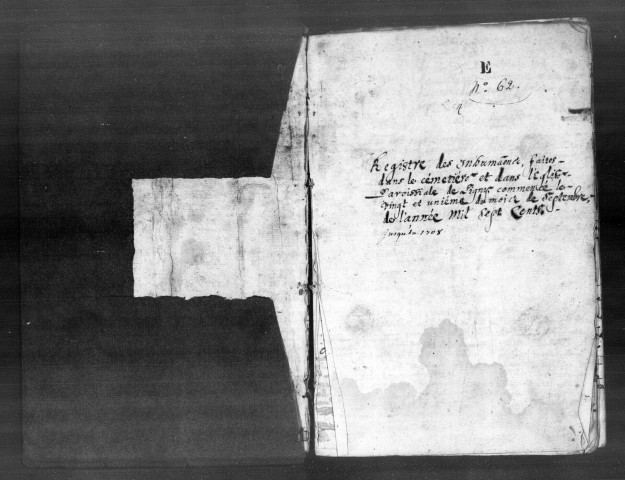 E
N.° 62.
Registre des Inhumations, faites
dans le cémetiere et dans l'églize
Paroissiale de commencé le
vingt et unième du mois de Septembre,
de l'année Mil Sept Cents.
jusqu'en 1708